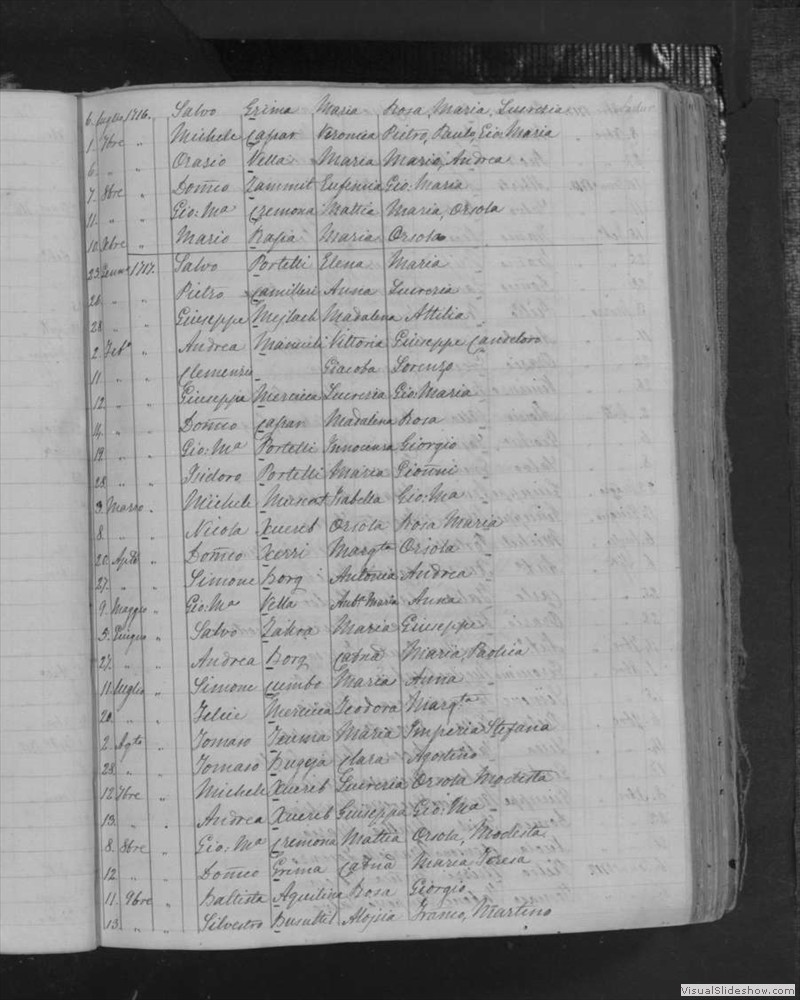 6. luglio 1716. Salvo Grima Maria Rosa, Maria, Lucretia
1. 7bre " Michele Caruar Veronica Pietro, Paulo, Gio: Maria
6. " " Orasio Vella Maria Mario, Andrea
7. 8bre " Dom̃co Zammit Eufemia Gio: Maria
11. " " Gio: Mª Cremona Mattia Maria, Orsola
10. Xbre " Mario Maria Orsola
23. Genn° 1717. Salvo Portelli Elena Maria
26. " " Pietro Camilleri Anna Lucrezia
28. " " Giuseppe Mejlach Madalena Attilia
2. Feb° " Andrea Vittoria Giuseppe Candeloro
11. " " Clemenzia Giacoba Lorenzo
12. " " Giuseppe Mercieca Lucrezia Gio: Maria
14. " " Dom̃co Madalena Rosa
19. " " Gio: Mª Portelli Innocenza Giorgio
28. " " Isidoro Portelli Maria Gioñni
3. Marzo " Michele Muscat Isabella Gio: Ma
8. " " Nicola Xuereb Orsola Rosa Maria
20. Aple " Dom̃co Xerri Margta Orsola
27. " " Simone Borg Antonia Andrea
9. Maggio " Gio: Mª Vella Anta Maria Anna
5. Giugno " Salvo Zahra Maria Giuseppe
27. " " Andrea Borg Catñā Maria, Paolica
11. luglio " Simone Cumbo Maria Anna
20. " " Felice Mercieca Teodora Margta
2. Agto " Tomaso Maria Imperia Stefana
28. " " Tomaso Bugeja Clara Agostino
12. 7bre " Michele Xuereb Lucrezia Orsola Modesta
13. " " Andrea Xuereb Giuseppa Gio: Ma
8. 8bre " Gio: Mª Cremona Mattia Orsola, Modesta
12. " " Dom̃co Grima Catñā Maria Teresa
11. 9bre " Battista Aquilina Rosa Giorgio
13. " " Silvestro Busuttil Aloisia Franco, Martino
VisualSlideshow.com